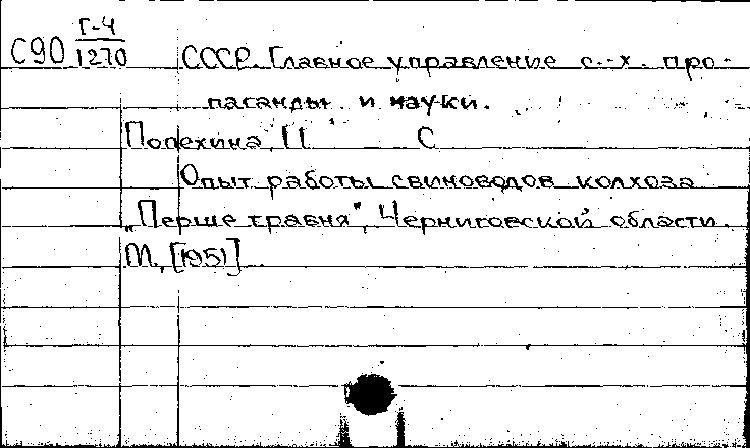 С90 Г-4/1270 СССР. Главное управление с.-х. про-
паганды и науки.
Попехина, П С
Опыт работы свиноводов колхоза
„Перше травня", Черниговской области.
М., [1951]